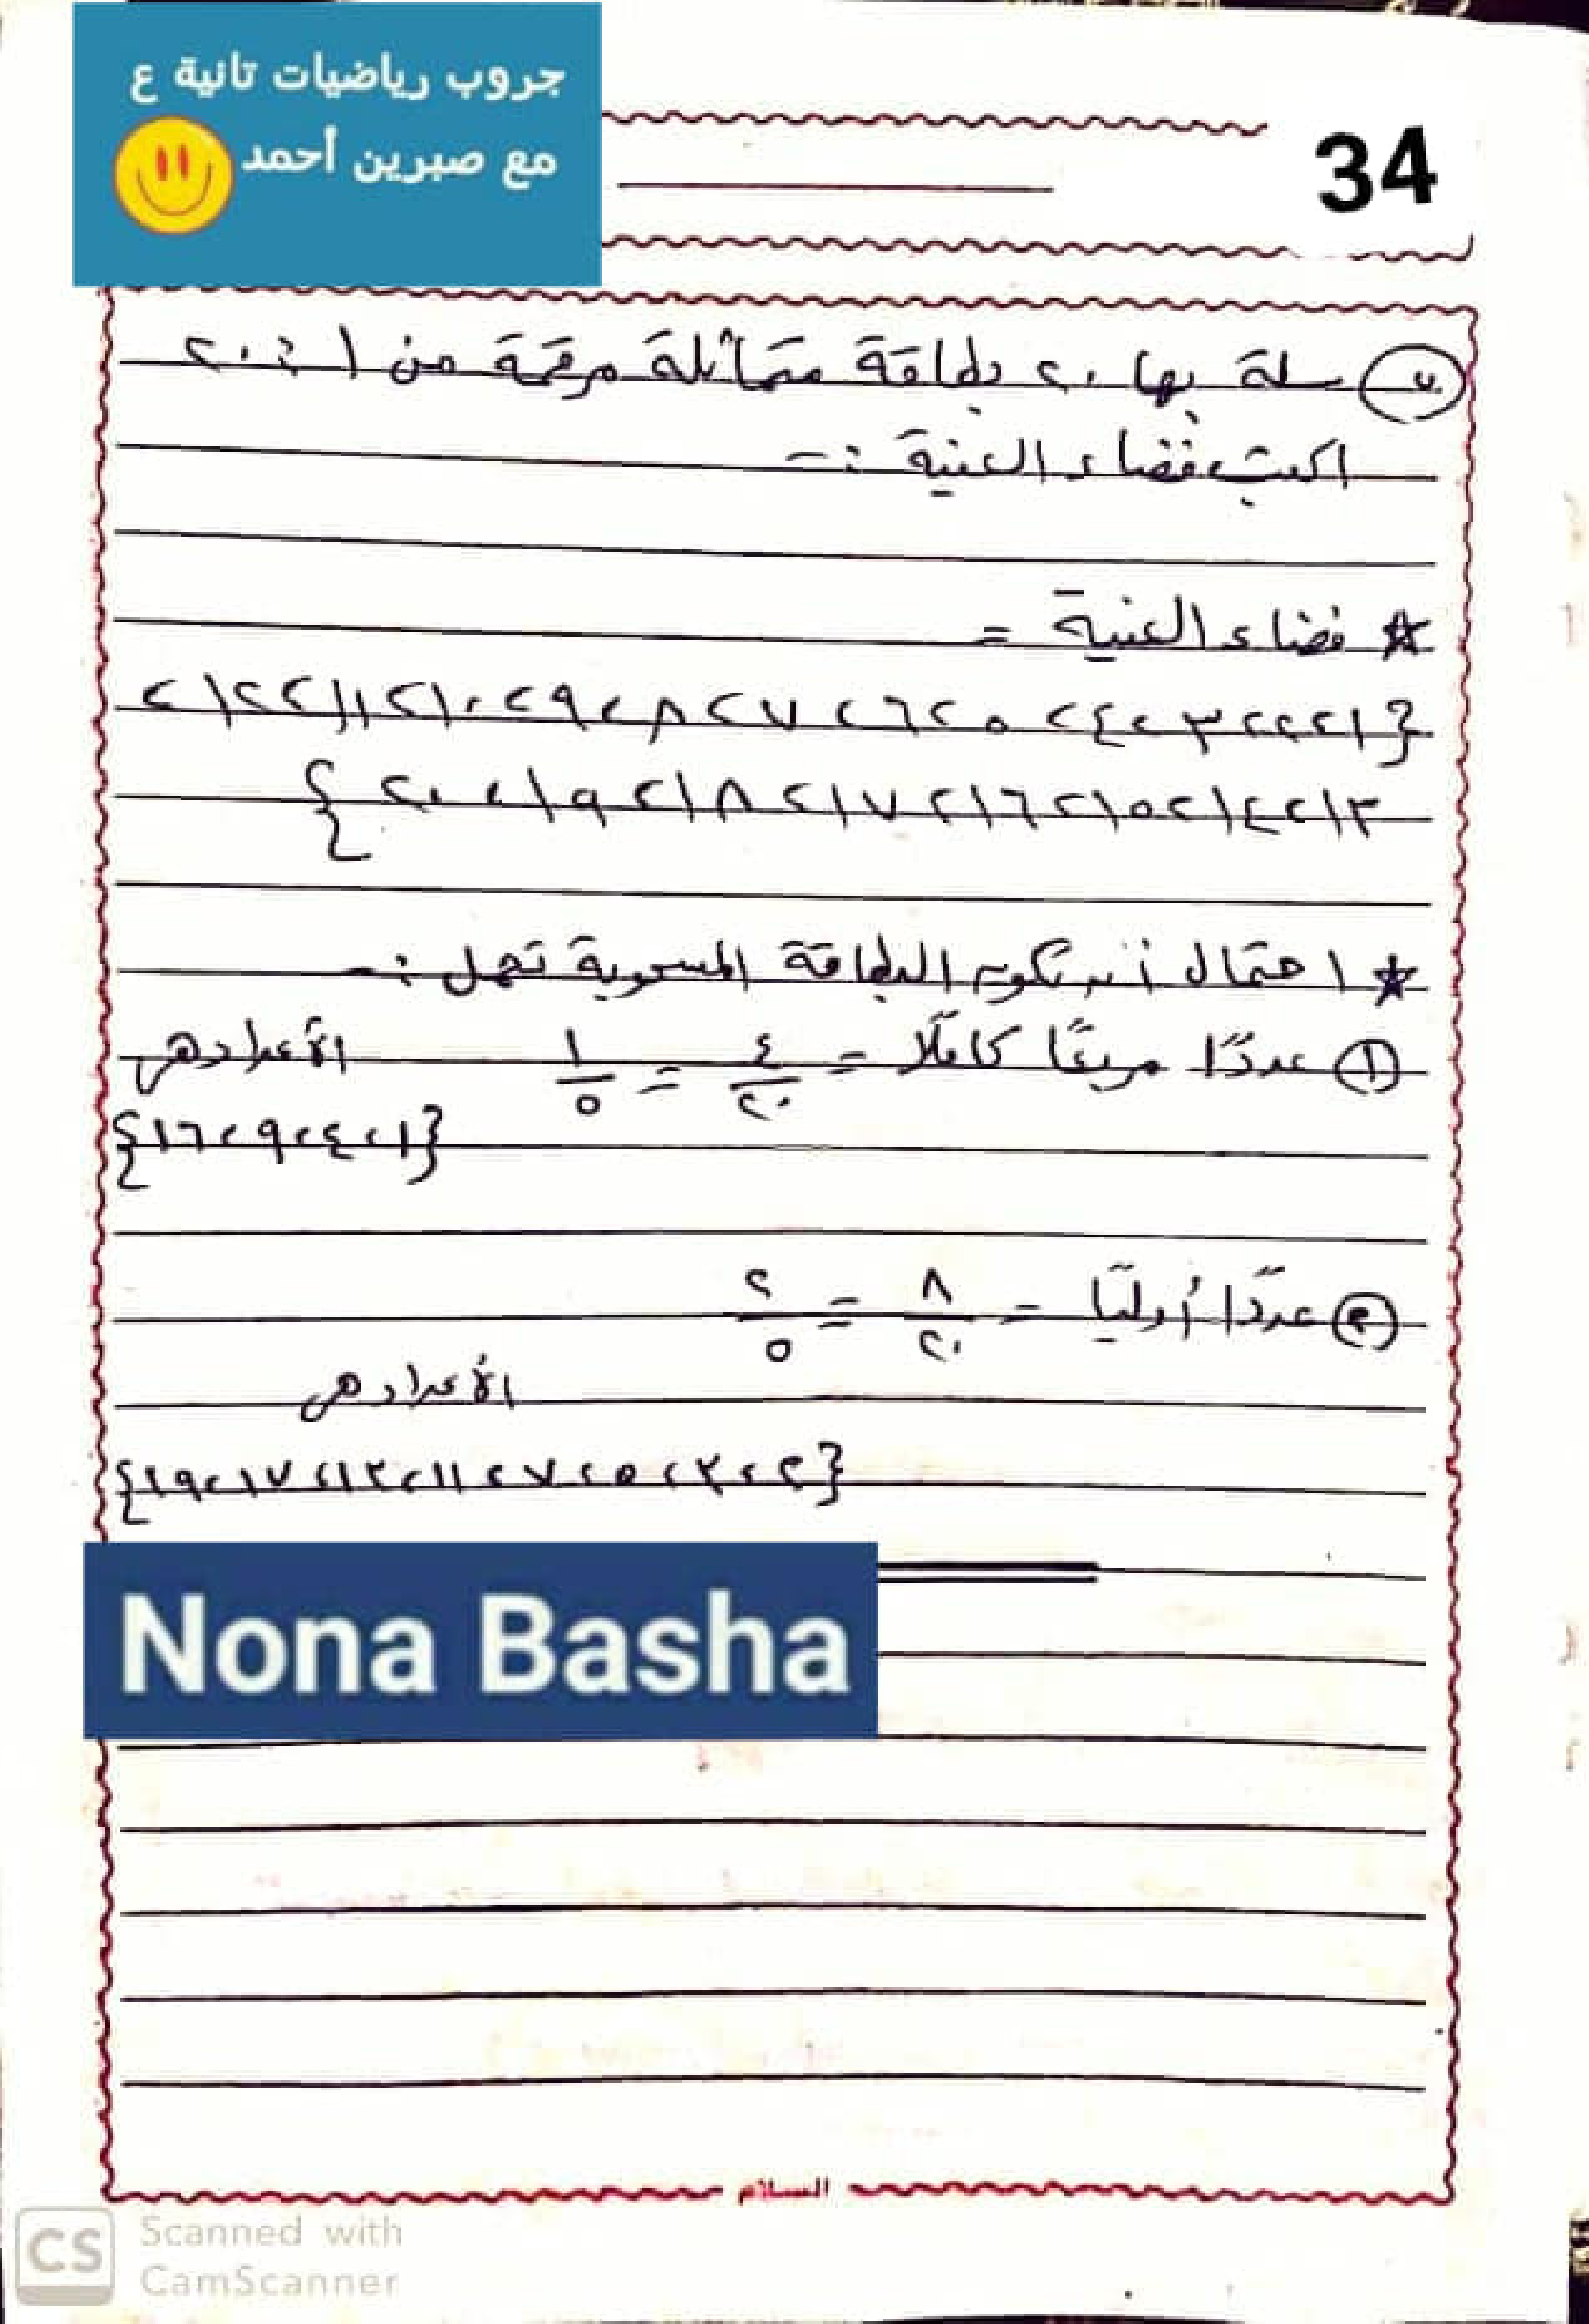 جروب رياضيات تانية ع
مع صبرين أحمد
34
٧ سلة بها ٢٠ بطاقة متماثلة مرقمة من ١ : ٢٠
اكتب فضاء العينة :-
☆ فضاء العينة =
{١، ٢، ٣، ٤، ٥، ٦، ٧، ٨، ٩، ١٠، ١١، ١٢،
١٣، ١٤، ١٥، ١٦، ١٧، ١٨، ١٩، ٢٠}
☆ احتمال أن تكون البطاقة المسحوبة تحمل :-
① عددًا مربعًا كاملًا = ٤/٢٠ = ١/٥ الأعداد هى
{١، ٤، ٩، ١٦}
② عددًا أوليًا = ٨/٢٠ = ٢/٥
الأعداد هى
{٢، ٣، ٥، ٧، ١١، ١٣، ١٧، ١٩}
Nona Basha
السلام
CS Scanned with
CamScanner